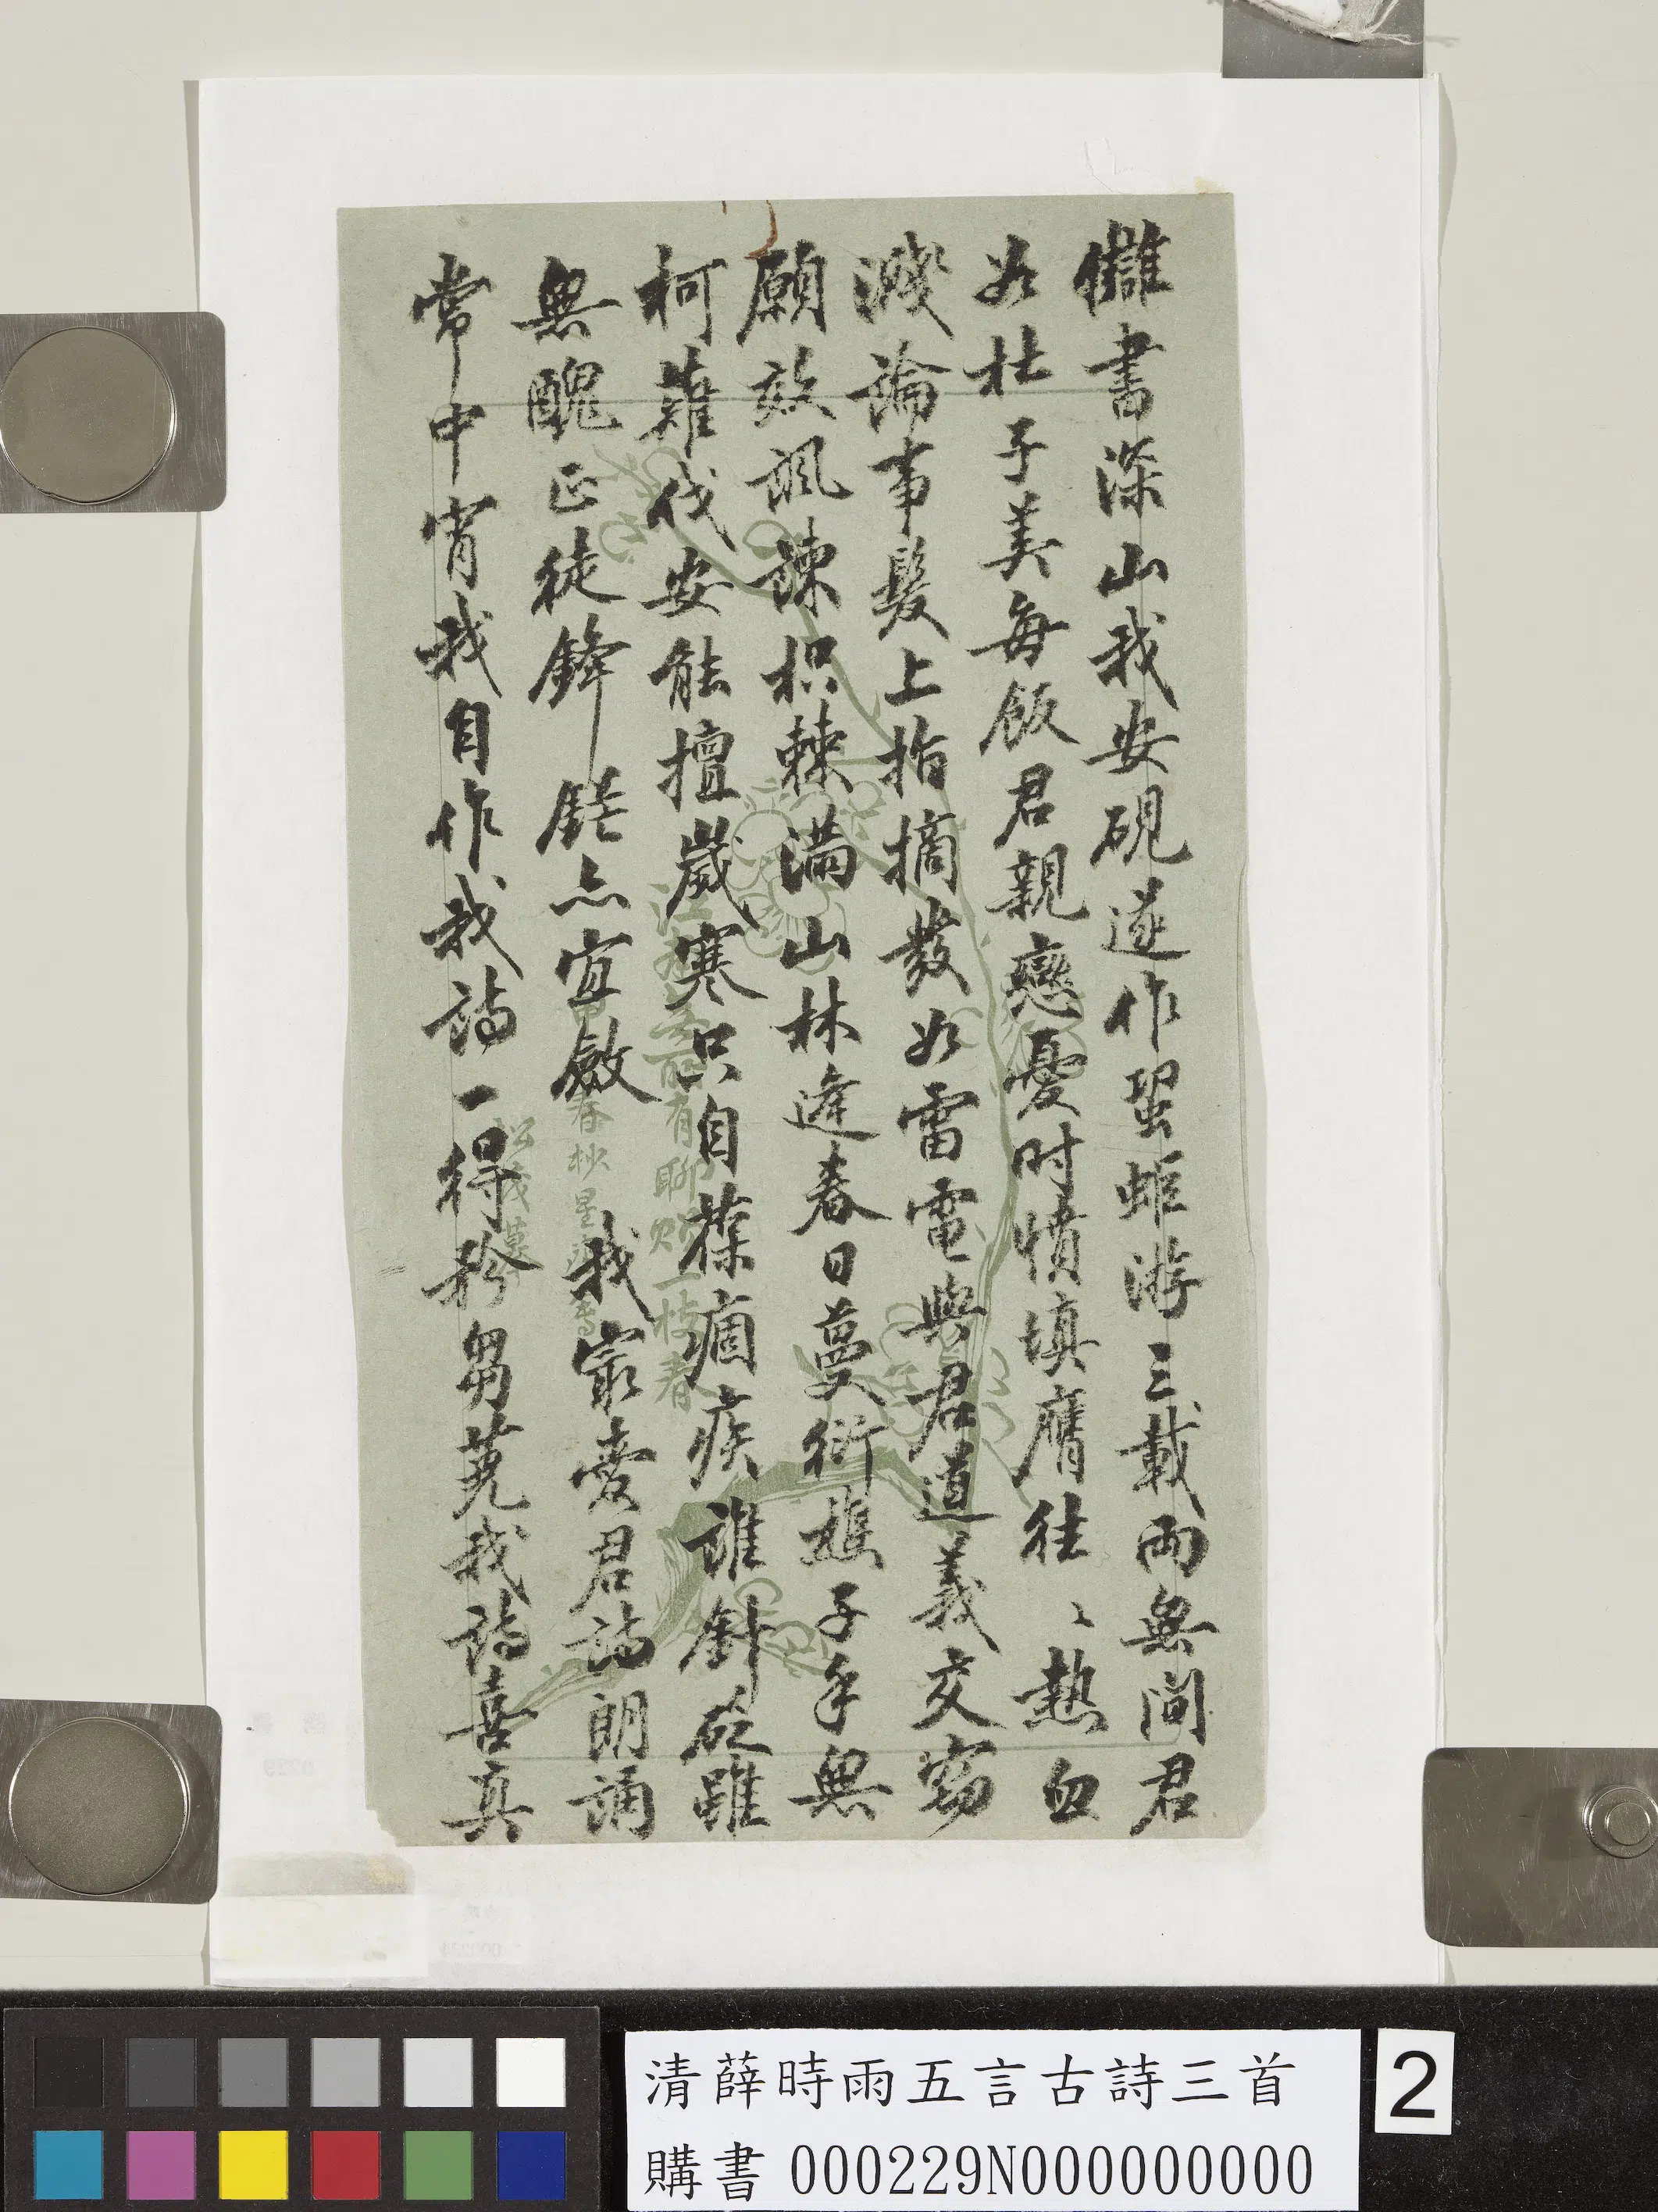 讎書深山我安硯遂作蛩蚷游三載兩無間君
如杜子美每飯君親戀憂時憤填膺往〻熱血
濺論事髮上指摘發如雷電與君道義交竊
願效諷諫枳棘滿山林逢春日蔓衍樵子手無
柯薙伐安能擅歲寒只自葆痼疾誰針砭雖
無醜正徒鋒鋩亦宜斂 我最愛君詩朗誦
常中宵我自作我詩一得矜芻蕘我詩喜真
江南無所有聊贈一枝春
春杪星
清薛時雨五言古詩三首
購書 000229N000000000
2